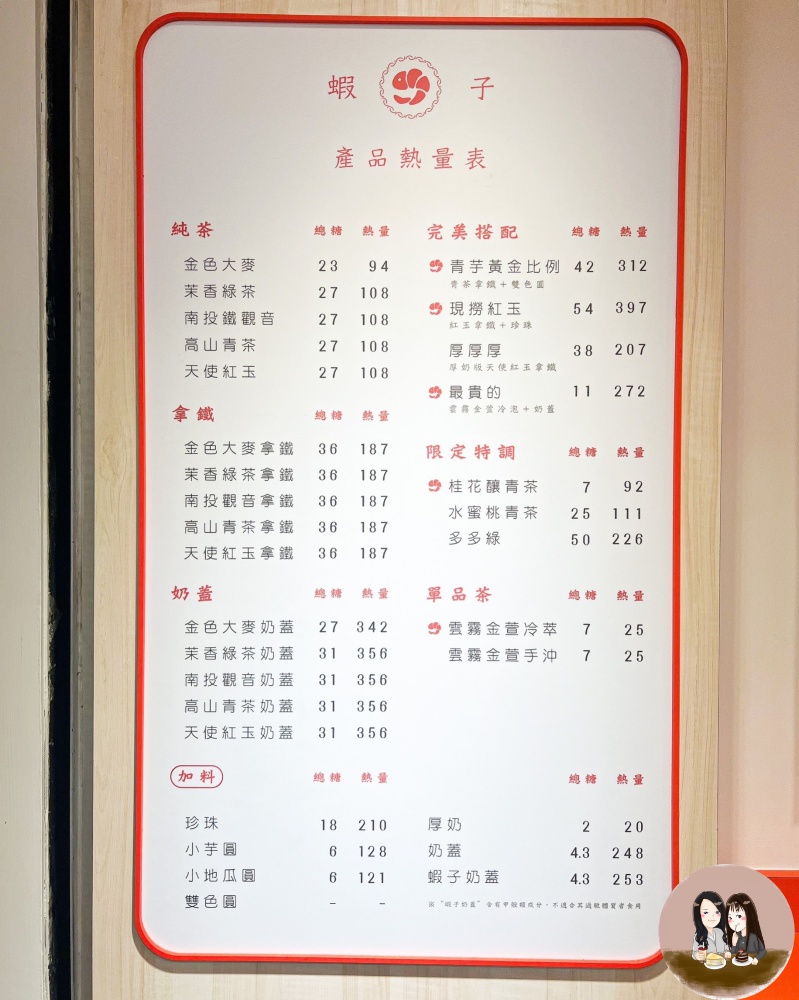 蝦 子
產品熱量表
純茶 總糖 熱量
金色大麥 23 94
茉香綠茶 27 108
南投鐵觀音 27 108
高山青茶 27 108
天使紅玉 27 108
拿鐵 總糖 熱量
金色大麥拿鐵 36 187
茉香綠茶拿鐵 36 187
南投觀音拿鐵 36 187
高山青茶拿鐵 36 187
天使紅玉拿鐵 36 187
奶蓋 總糖 熱量
金色大麥奶蓋 27 342
茉香綠茶奶蓋 31 356
南投觀音奶蓋 31 356
高山青茶奶蓋 31 356
天使紅玉奶蓋 31 356
完美搭配 總糖 熱量
青芋黃金比例 42 312
青茶拿鐵+雙色圓
現撈紅玉 54 397
紅玉拿鐵+珍珠
厚厚厚 38 207
厚奶版天使紅玉拿鐵
最貴的 11 272
雲霧金萱冷泡+奶蓋
限定特調 總糖 熱量
桂花釀青茶 7 92
水蜜桃青茶 25 111
多多綠 50 226
單品茶 總糖 熱量
雲霧金萱冷萃 7 25
雲霧金萱手沖 7 25
加料 總糖 熱量
珍珠 18 210
小芋圓 6 128
小地瓜圓 6 121
雙色圓 - -
總糖 熱量
厚奶 2 20
奶蓋 4.3 248
蝦子奶蓋 4.3 253
※"蝦子奶蓋"含有甲殼類成分,不適合其過敏體質者食用